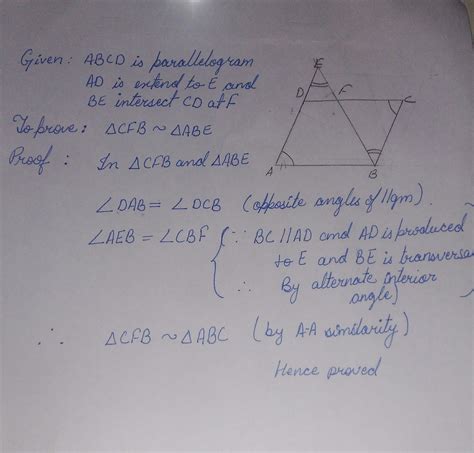 Given: ABCD is parallelogram
AD is extend to E and
BE intersect CD at F
To prove: △CFB ~ △ABE
Proof: In △CFB and △ABE
∠DAB = ∠DCB (opposite angles of ||gm).
∠AEB = ∠CBF (∵ BC || AD and AD is produced
to E and BE is transversa
∴ By alternate interior
angle)
∴ △CFB ~ △ABC (by A-A similarity.)
Hence proved
E
D F C
A B